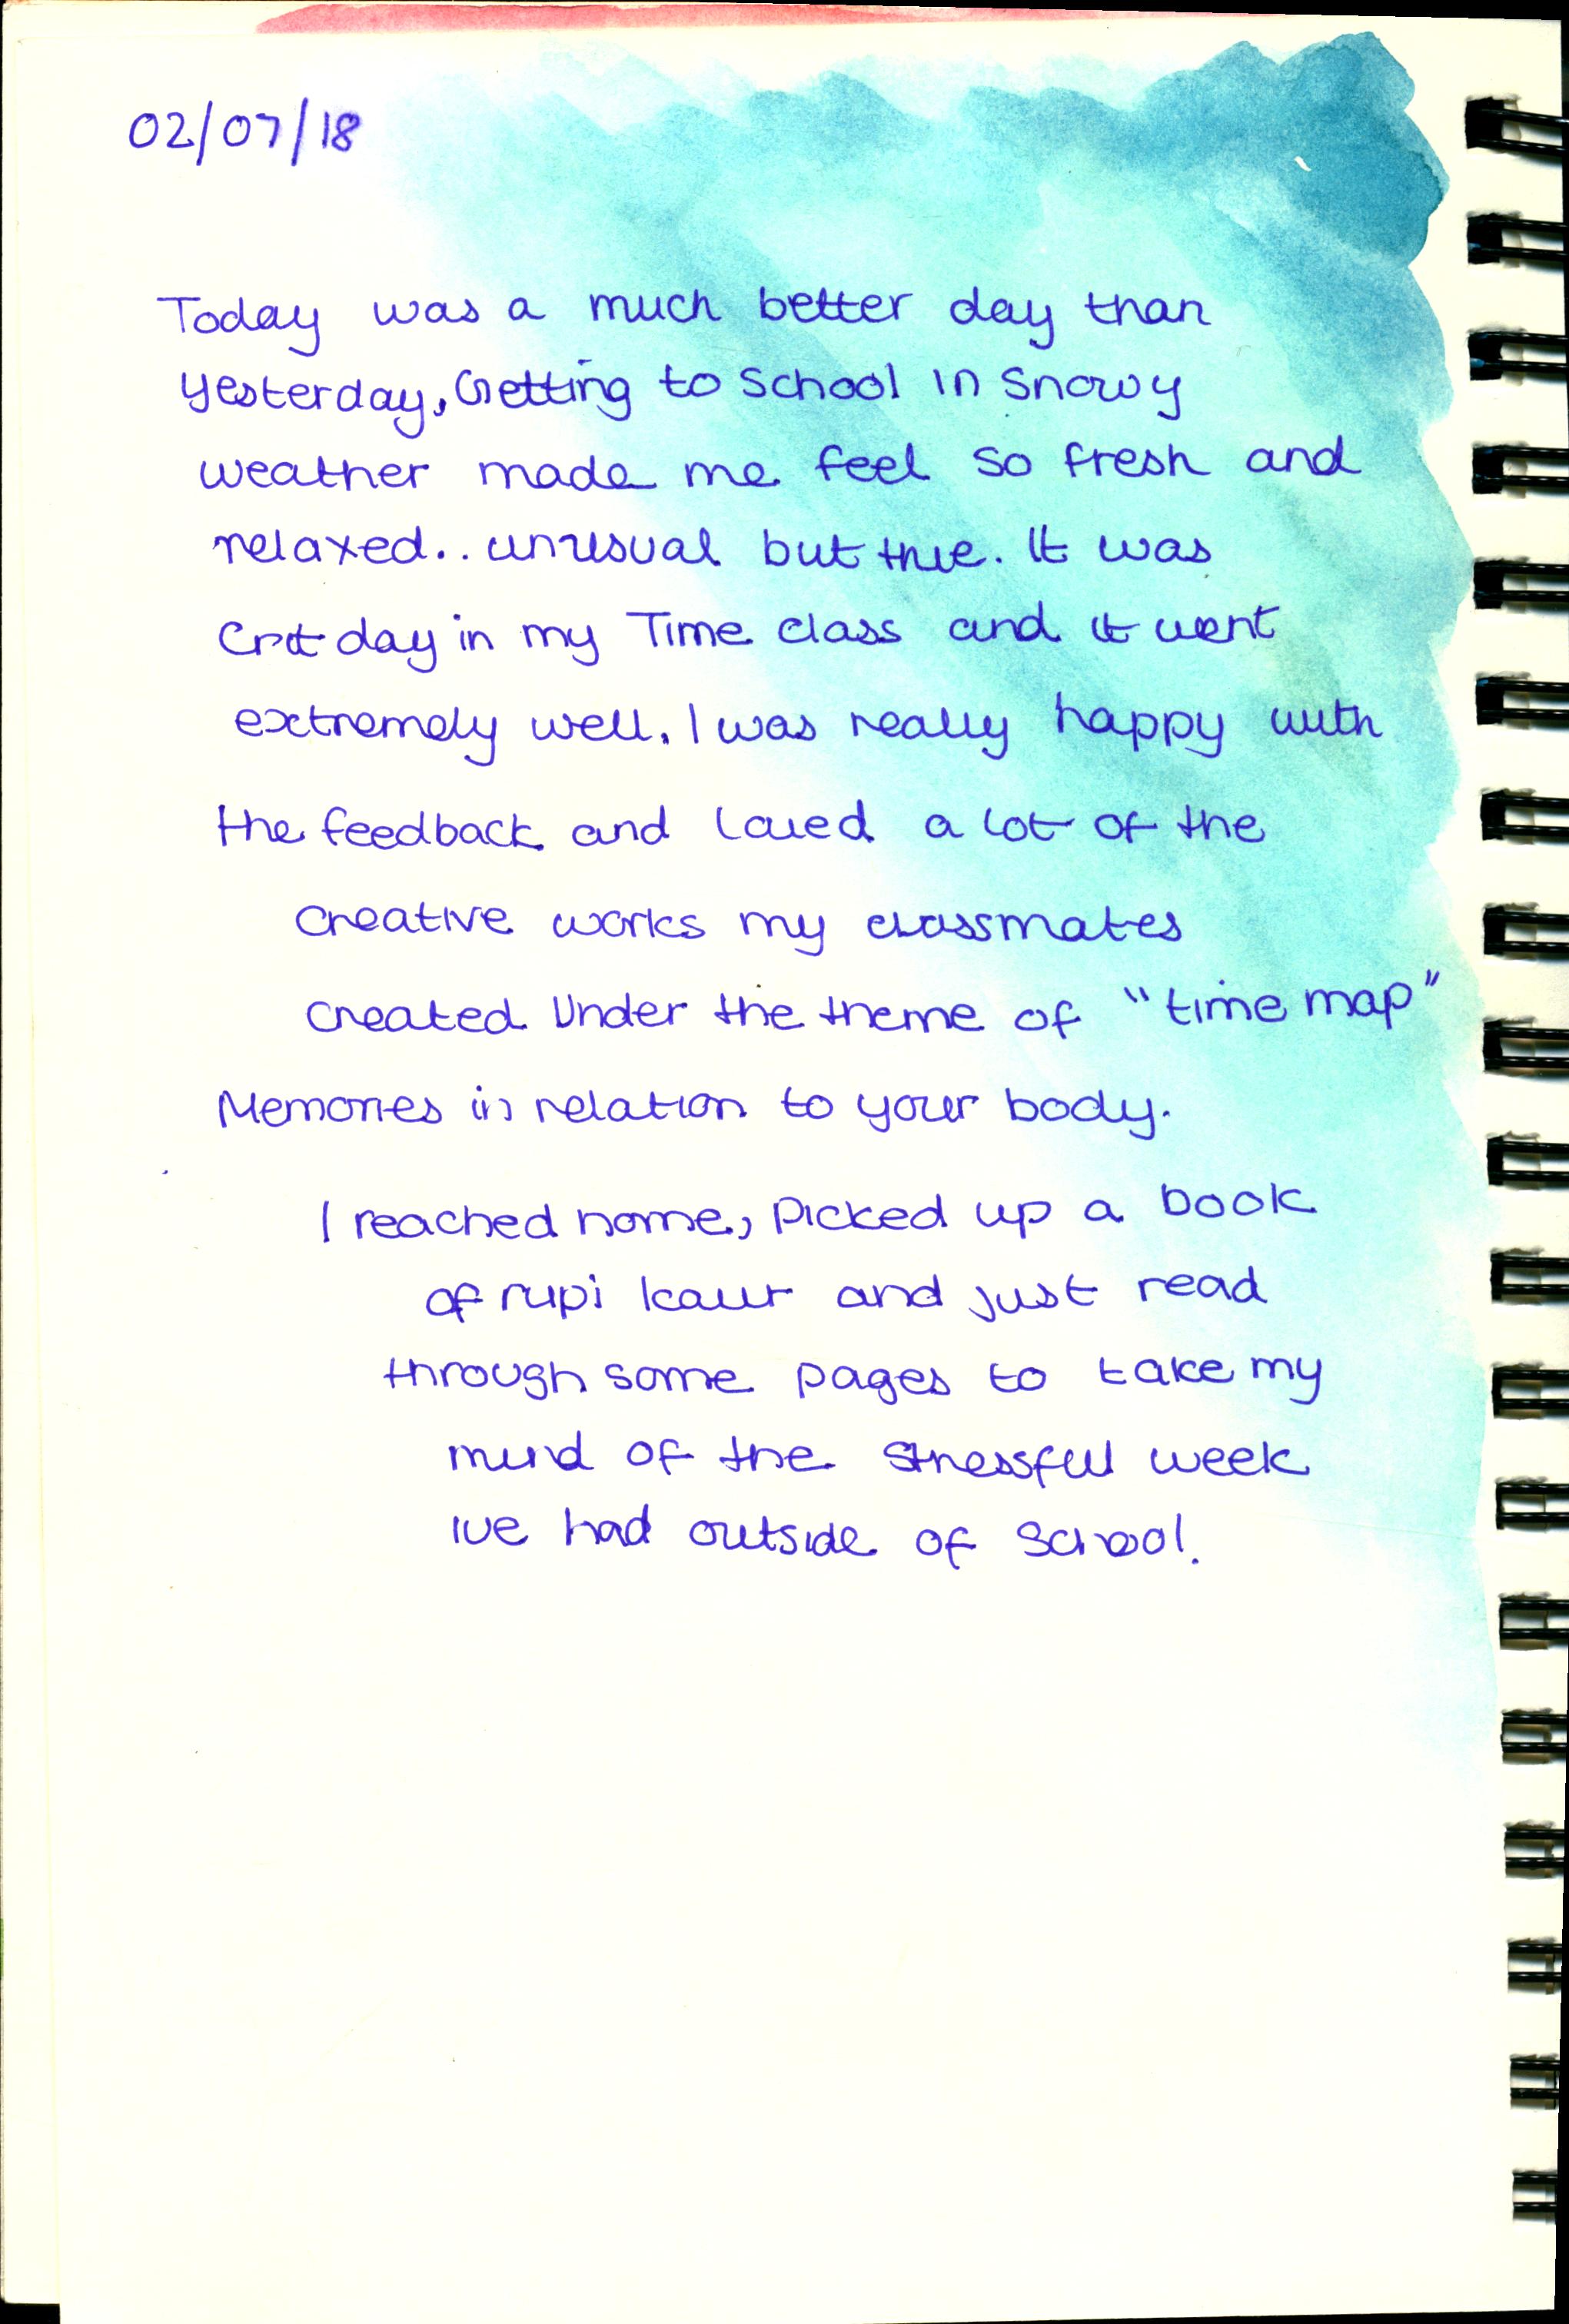 02/07/18
Today was a much better day than
yesterday, Getting to School in Snowy
weather made me feel so fresh and
relaxed.. unusual but true. It was
Crit day in my Time class and it went
extremely well. I was really happy with
the feedback and loved a lot of the
creative works my classmates
created Under the theme of "time map"
Memories in relation to your body.
I reached home, Picked up a book
of rupi kaur and just read
through some pages to take my
mind of the stressful week
ive had outside of School.